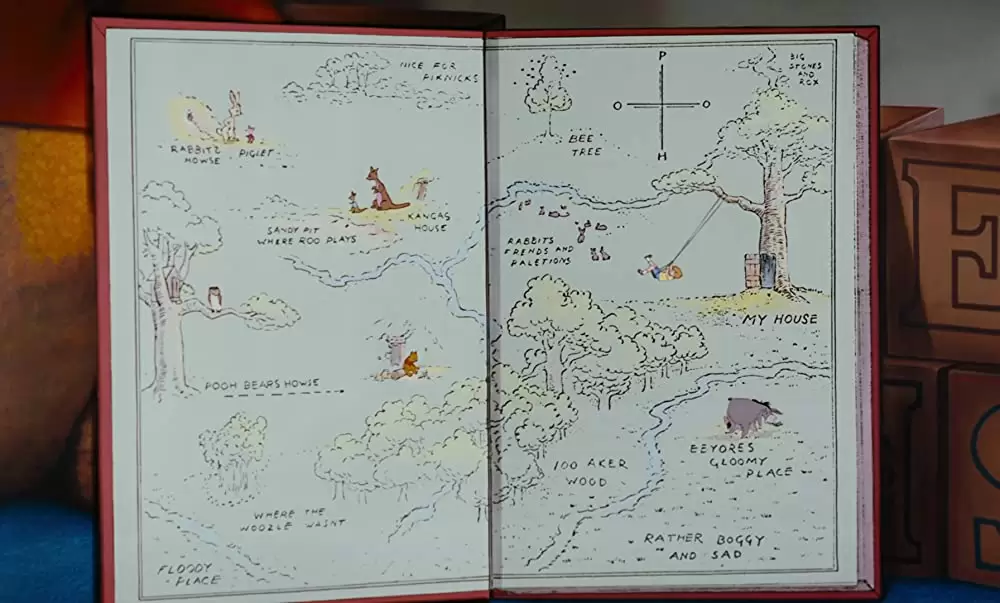 NICE FOR
PIKNICKS
RABBITS
HOWSE
PIGLET
KANGAS
HOUSE
SANDY PIT
WHERE ROO PLAYS
POOH BEARS HOWSE
WHERE THE
WOOZLE WASNT
FLODDY
PLACE
P
O O
H
BIG
STONES
AND
ROX
BEE
TREE
RABBITS
FRENDS AND
RALETIONS
MY HOUSE
100 AKER
WOOD
EEYORES
GLOOMY
PLACE
RATHER BOGGY
AND SAD
E